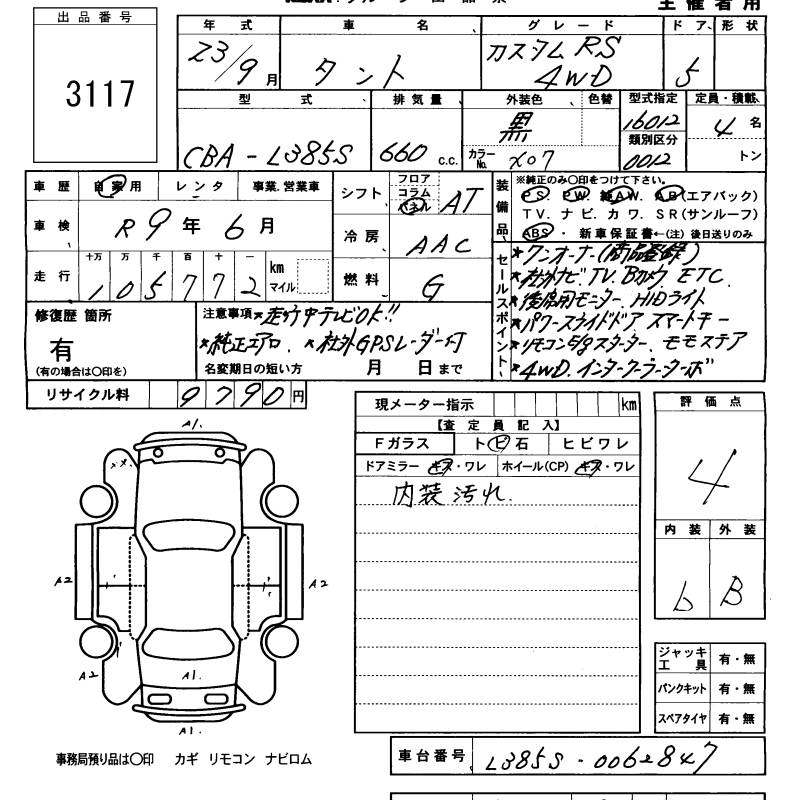 主催者用
出品番号
3117
年式 車名 グレード ドア 形状
23/9月 タント カスタムRS 4WD 5
型式 排気量 外装色 色替 型式指定 定員・積載
CBA-L385S 660 c.c. 黒 カラーNo. X07 16012 4名
類別区分 0012 トン
車歴 自家用 レンタ 事業.営業車
車検 R9年6月
走行 十万 万 千 百 十 一
105772 km マイル
シフト フロア コラム パネル AT
冷房 AAC
燃料 G
装備品 ※純正のみ〇印をつけて下さい。
PS. PW. 純AW. AB(エアバック)
TV. ナビ. カワ. SR(サンルーフ)
ABS・ 新車保証書←(注)後日送りのみ
セールスポイント
★ワンオーナー(商品登録)
★社外ナビ.TV.Bカメラ.ETC.
★後席用モニター.HIDライト
★パワースライドドア スマートキー
★リモコンEgスターター. モモステア
★4WD.インタークーラーターボ
修復歴 箇所
有
(有の場合は〇印を)
注意事項 ★走行中テレビOK!!
★純正エアロ. ★社外GPSレーダー付
名変期日の短い方 月 日まで
リサイクル料 9790円
現メーター指示 km
【査定員記入】
Fガラス トビ石 ヒビワレ
ドアミラー キズ・ワレ ホイール(CP) キズ・ワレ
内装汚れ.
評価点
4
内装 外装
b B
A1.
A2 A2
A2 A1.
A1.
ジャッキ工具 有・無
パンクキット 有・無
スペアタイヤ 有・無
事務局預り品は〇印 カギ リモコン ナビロム
車台番号 L385S-0062847